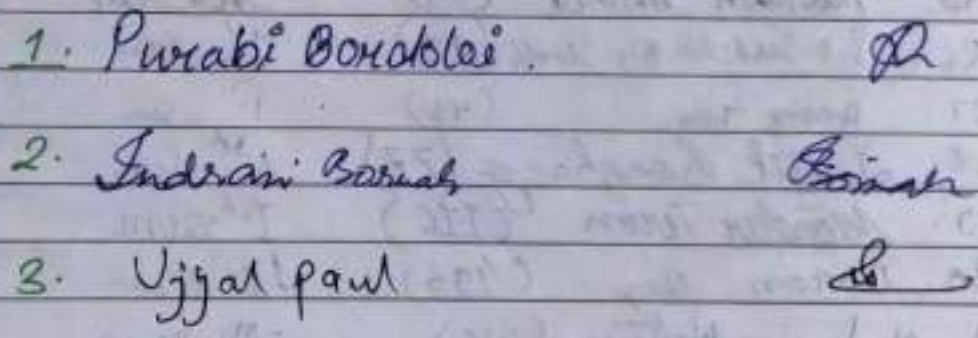 1. Purabi Bordoloi.
2. Indrani Baruah
3. Ujjal paul